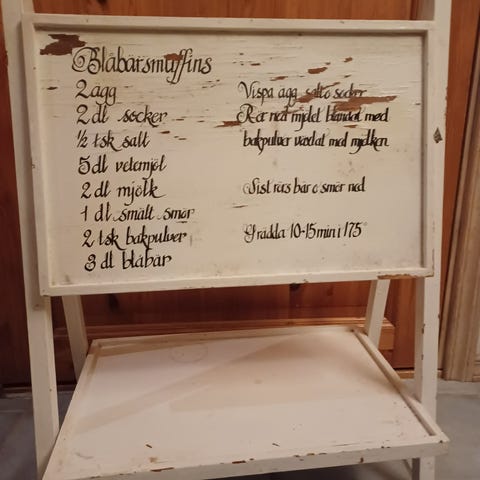 Blåbärsmuffins
2 ägg
2 dl socker
½ tsk salt
5 dl vetemjöl
2 dl mjölk
1 dl smält smör
2 tsk bakpulver
3 dl blåbär
Vispa ägg salt o socker
Rör ned mjölet blandat med
bakpulver växlat med mjölken
Sist rörs bär o smör ned
Grädda 10-15 min i 175°